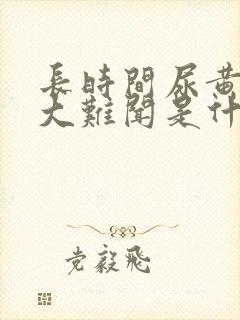 長時間尿黃
大難聞是什
党毅飛